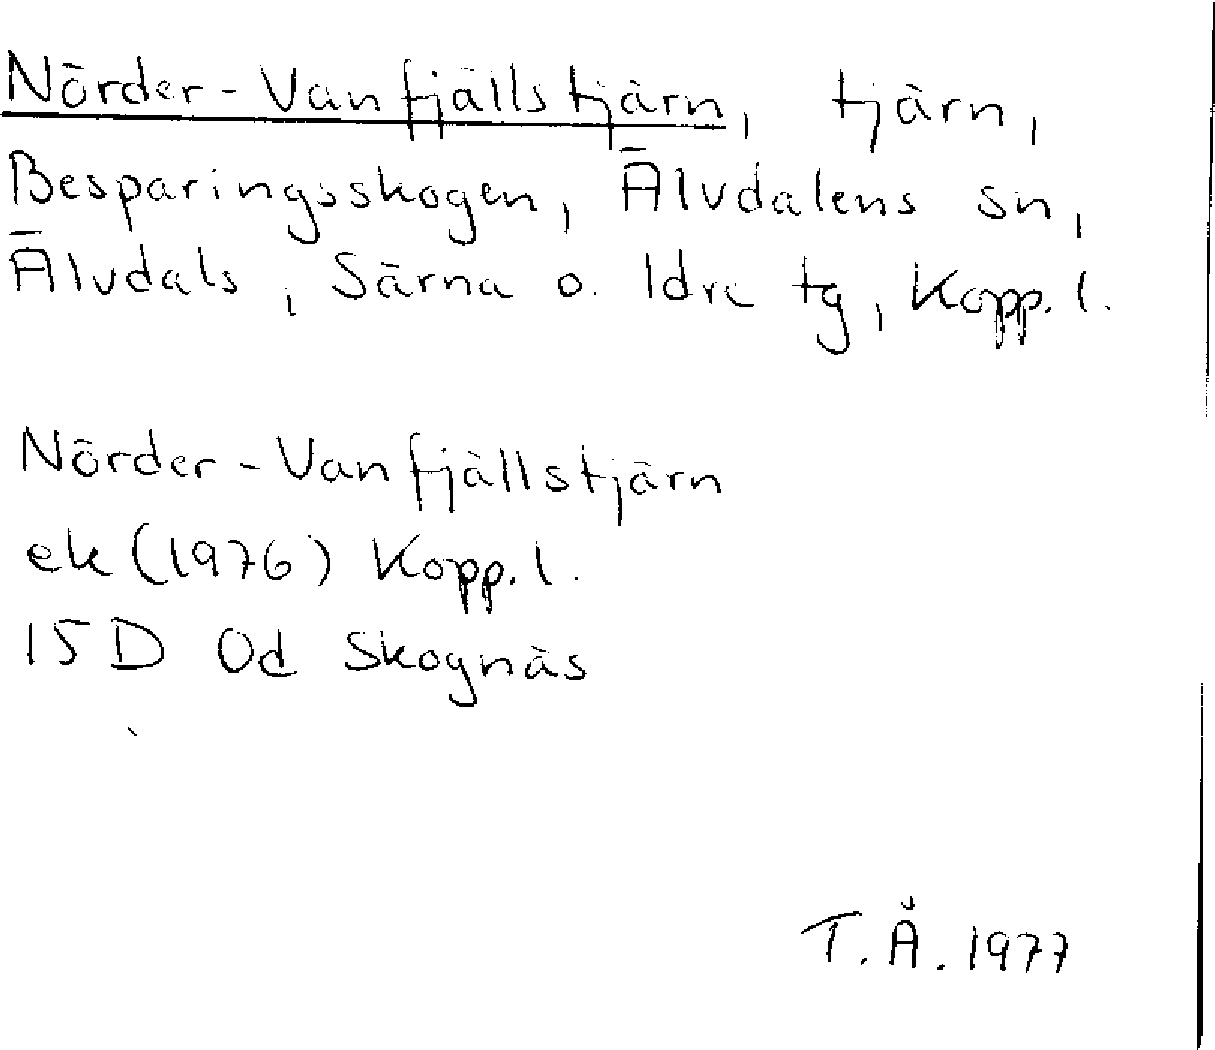 Nörder-Vanfjällstjärn, tjärn,
Besparingsskogen, Älvdalens sn,
Älvdals, Särna o. Idre tg, Kopp. l.
Nörder-Vanfjällstjärn
ek (1976) Kopp. l.
15D 0d Skognäs
T. Å. 1977